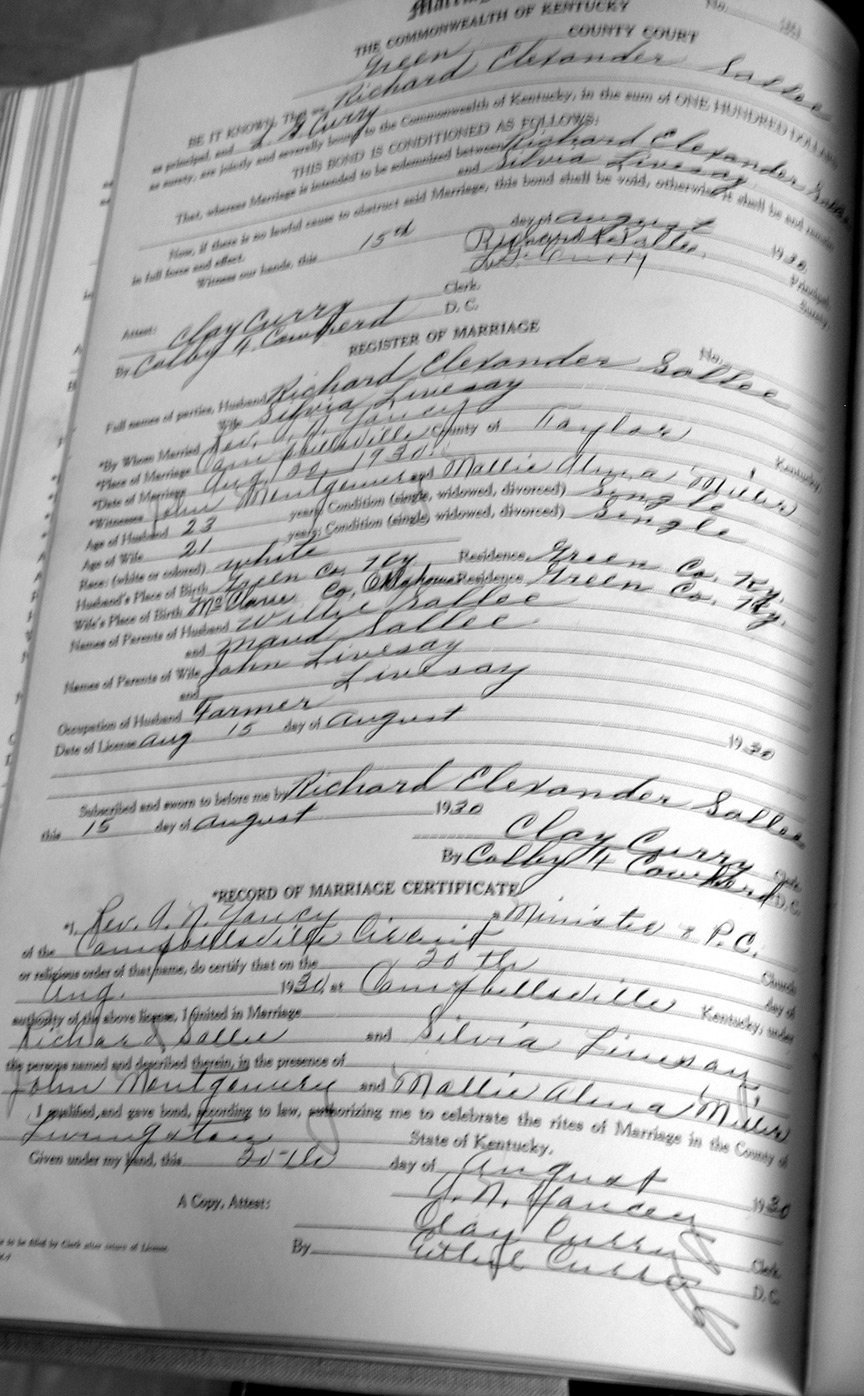 Marri
No.
THE COMMONWEALTH OF KENTUCKY
Green COUNTY COURT
BE IT KNOWN, That we Richard Elexander Sallee
as principal, and L. G. Curry
as surety, are jointly and severally bound to the Commonwealth of Kentucky, in the sum of ONE HUNDRED DOLLARS
THIS BOND IS CONDITIONED AS FOLLOWS:
That, whereas Marriage is intended to be solemnized between Richard Elexander Sallee
and Silvia Livesay
Now, if there is no lawful cause to obstruct said Marriage, this bond shall be void, otherwise it shall be and remain
in full force and effect.
Witness our hands, this 15th day of August 1930
Richard Sallee Principal
Surety
Attest: Clay Curry Clerk.
By Colby H. Cowherd D. C.
REGISTER OF MARRIAGE
No.
Full names of parties, Husband Richard Elexander Sallee
Wife Silvia Livesay
*By Whom Married Rev. Yancey
*Place of Marriage Campbellsville County of Taylor Kentucky.
*Date of Marriage Aug. 20, 1930.
*Witnesses John Montgomery and Mallie Alma Miller
Age of Husband 23 years; Condition (single, widowed, divorced) Single
Age of Wife 21 years; Condition (single, widowed, divorced) Single
Race: (white or colored) white
Husband's Place of Birth Green Co. Ky Residence Green Co, Ky.
Wife's Place of Birth McClane Co, Oklahoma Residence Green Co, Ky.
Names of Parents of Husband Willie Sallee
and Maud Sallee
Names of Parents of Wife John Livesay
and Livesay
Occupation of Husband Farmer
Date of License Aug 15 day of August 1930
Subscribed and sworn to before me by Richard Elexander Sallee
this 15 day of August 1930
Clay Curry Clerk
By Colby H Cowherd D. C.
*RECORD OF MARRIAGE CERTIFICATE
*I, Rev. A. N. Yancy a Minister & P.C.
of the Campbellsville Circuit Church
or religious order of that name, do certify that on the 20th day of
Aug. 1930, at Campbellsville Kentucky, under
authority of the above license, I united in Marriage
Richard Sallie and Silvia Livesay,
the persons named and described therein, in the presence of
John Montgomery and Mallie Alma Miller
I qualified and gave bond, according to law, authorizing me to celebrate the rites of Marriage in the County of
Livingston State of Kentucky.
Given under my hand, this 20th day of August 1930
J. N. Yancey
A Copy, Attest: Clay Curry Clerk
By Ethyl Curry D. C.
to be filed by Clerk after return of License